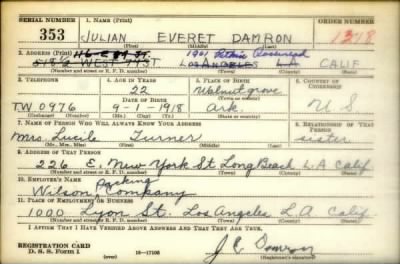 SERIAL NUMBER 1. NAME (Print) ORDER NUMBER
353 JULIAN EVERET DAMRON 1348
(First) (Middle) (Last)
2. ADDRESS (Print) 116 E 89 St. 1901
518½ WEST 74ST LOS ANGELES L.A CALIF
(Number and street or R. F. D. number) (Town) (County) (State)
3. TELEPHONE 4. AGE IN YEARS 5. PLACE OF BIRTH 6. COUNTRY OF CITIZENSHIP
22 Walnut grove
DATE OF BIRTH (Town or county)
TW 0976 9-1-1918 Ark. U S
(Exchange) (Number) (Mo.) (Day) (Yr.) (State or country)
7. NAME OF PERSON WHO WILL ALWAYS KNOW YOUR ADDRESS 8. RELATIONSHIP OF THAT PERSON
Mrs. Lucile Turner sister
(Mr., Mrs., Miss) (First) (Middle) (Last)
9. ADDRESS OF THAT PERSON
226 E. New York St Long Beach L.A Calif.
(Number and street or R. F. D. number) (Town) (County) (State)
10. EMPLOYER'S NAME
Wilson Packing Company
11. PLACE OF EMPLOYMENT OR BUSINESS
1000 Lyon St. Los Angeles L A Calif.
(Number and street or R. F. D. number) (Town) (County) (State)
I AFFIRM THAT I HAVE VERIFIED ABOVE ANSWERS AND THAT THEY ARE TRUE.
REGISTRATION CARD
D. S. S. Form 1 (over) 16—17105 J E Damron
(Registrant's signature)